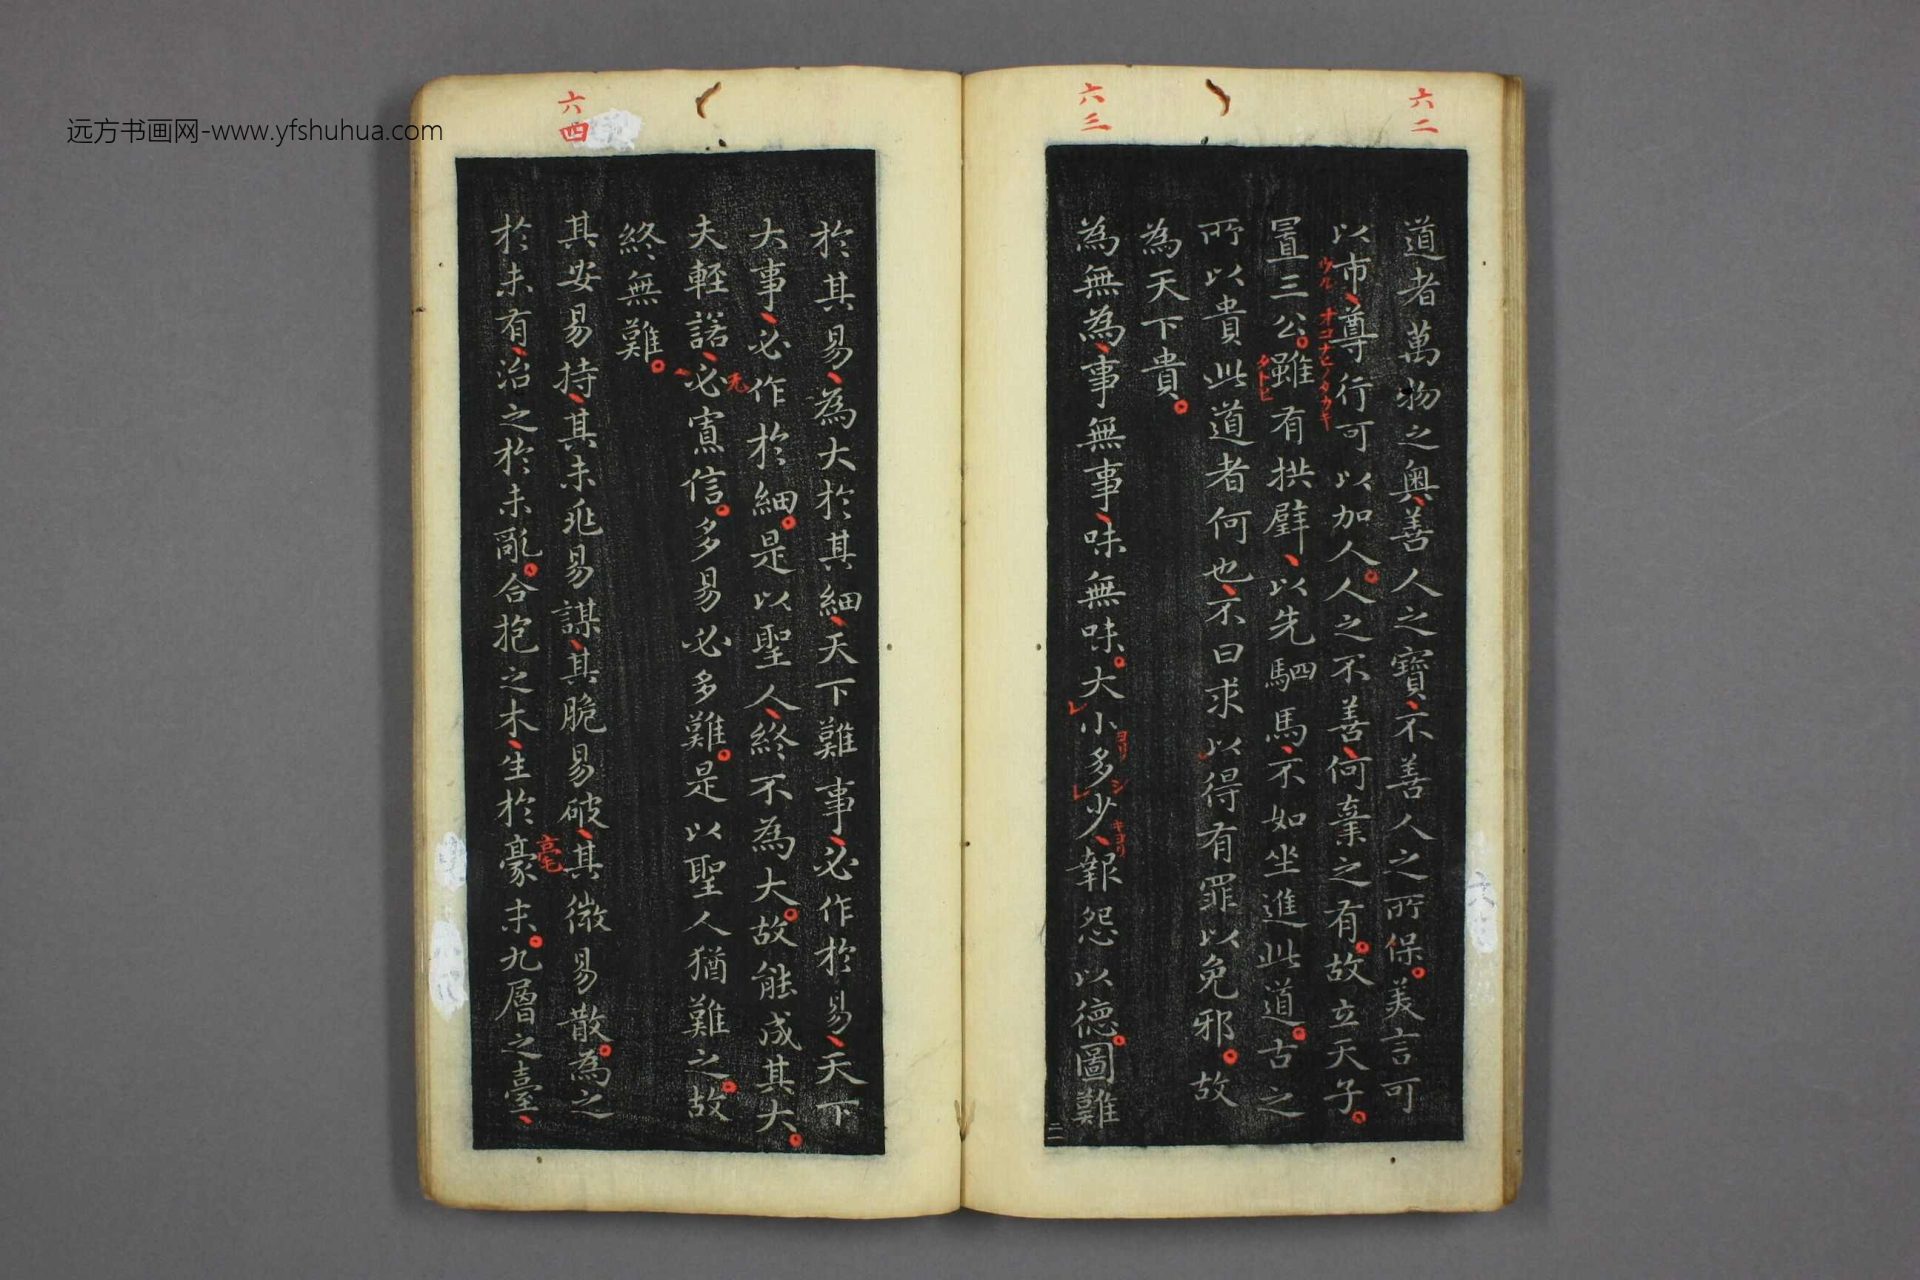 远方书画网-www.yfshuhua.com
六二
道者萬物之奧、善人之寶、不善人之所保。美言可
以市、尊行可以加人。人之不善、何棄之有。故立天子。
ウル
オコナヒノタカキ
置三公。雖有拱璧、以先駟馬、不如坐進此道。古之
タトヒ
所以貴此道者何也、不曰求以得有罪以免邪。故
為天下貴。
六三
為無為、事無事、味無味。大小多少、報怨以德。圖難
二
於其易、為大於其細、天下難事、必作於易、天下
大事、必作於細。是以聖人、終不為大。故能成其大。
夫輕諾、必寡信。多易必多難。是以聖人猶難之。故
終無難。
六四
其安易持、其未兆易謀、其脆易破、其微易散。為之
於未有、治之於未亂。合抱之木、生於豪末。九層之臺、
毫